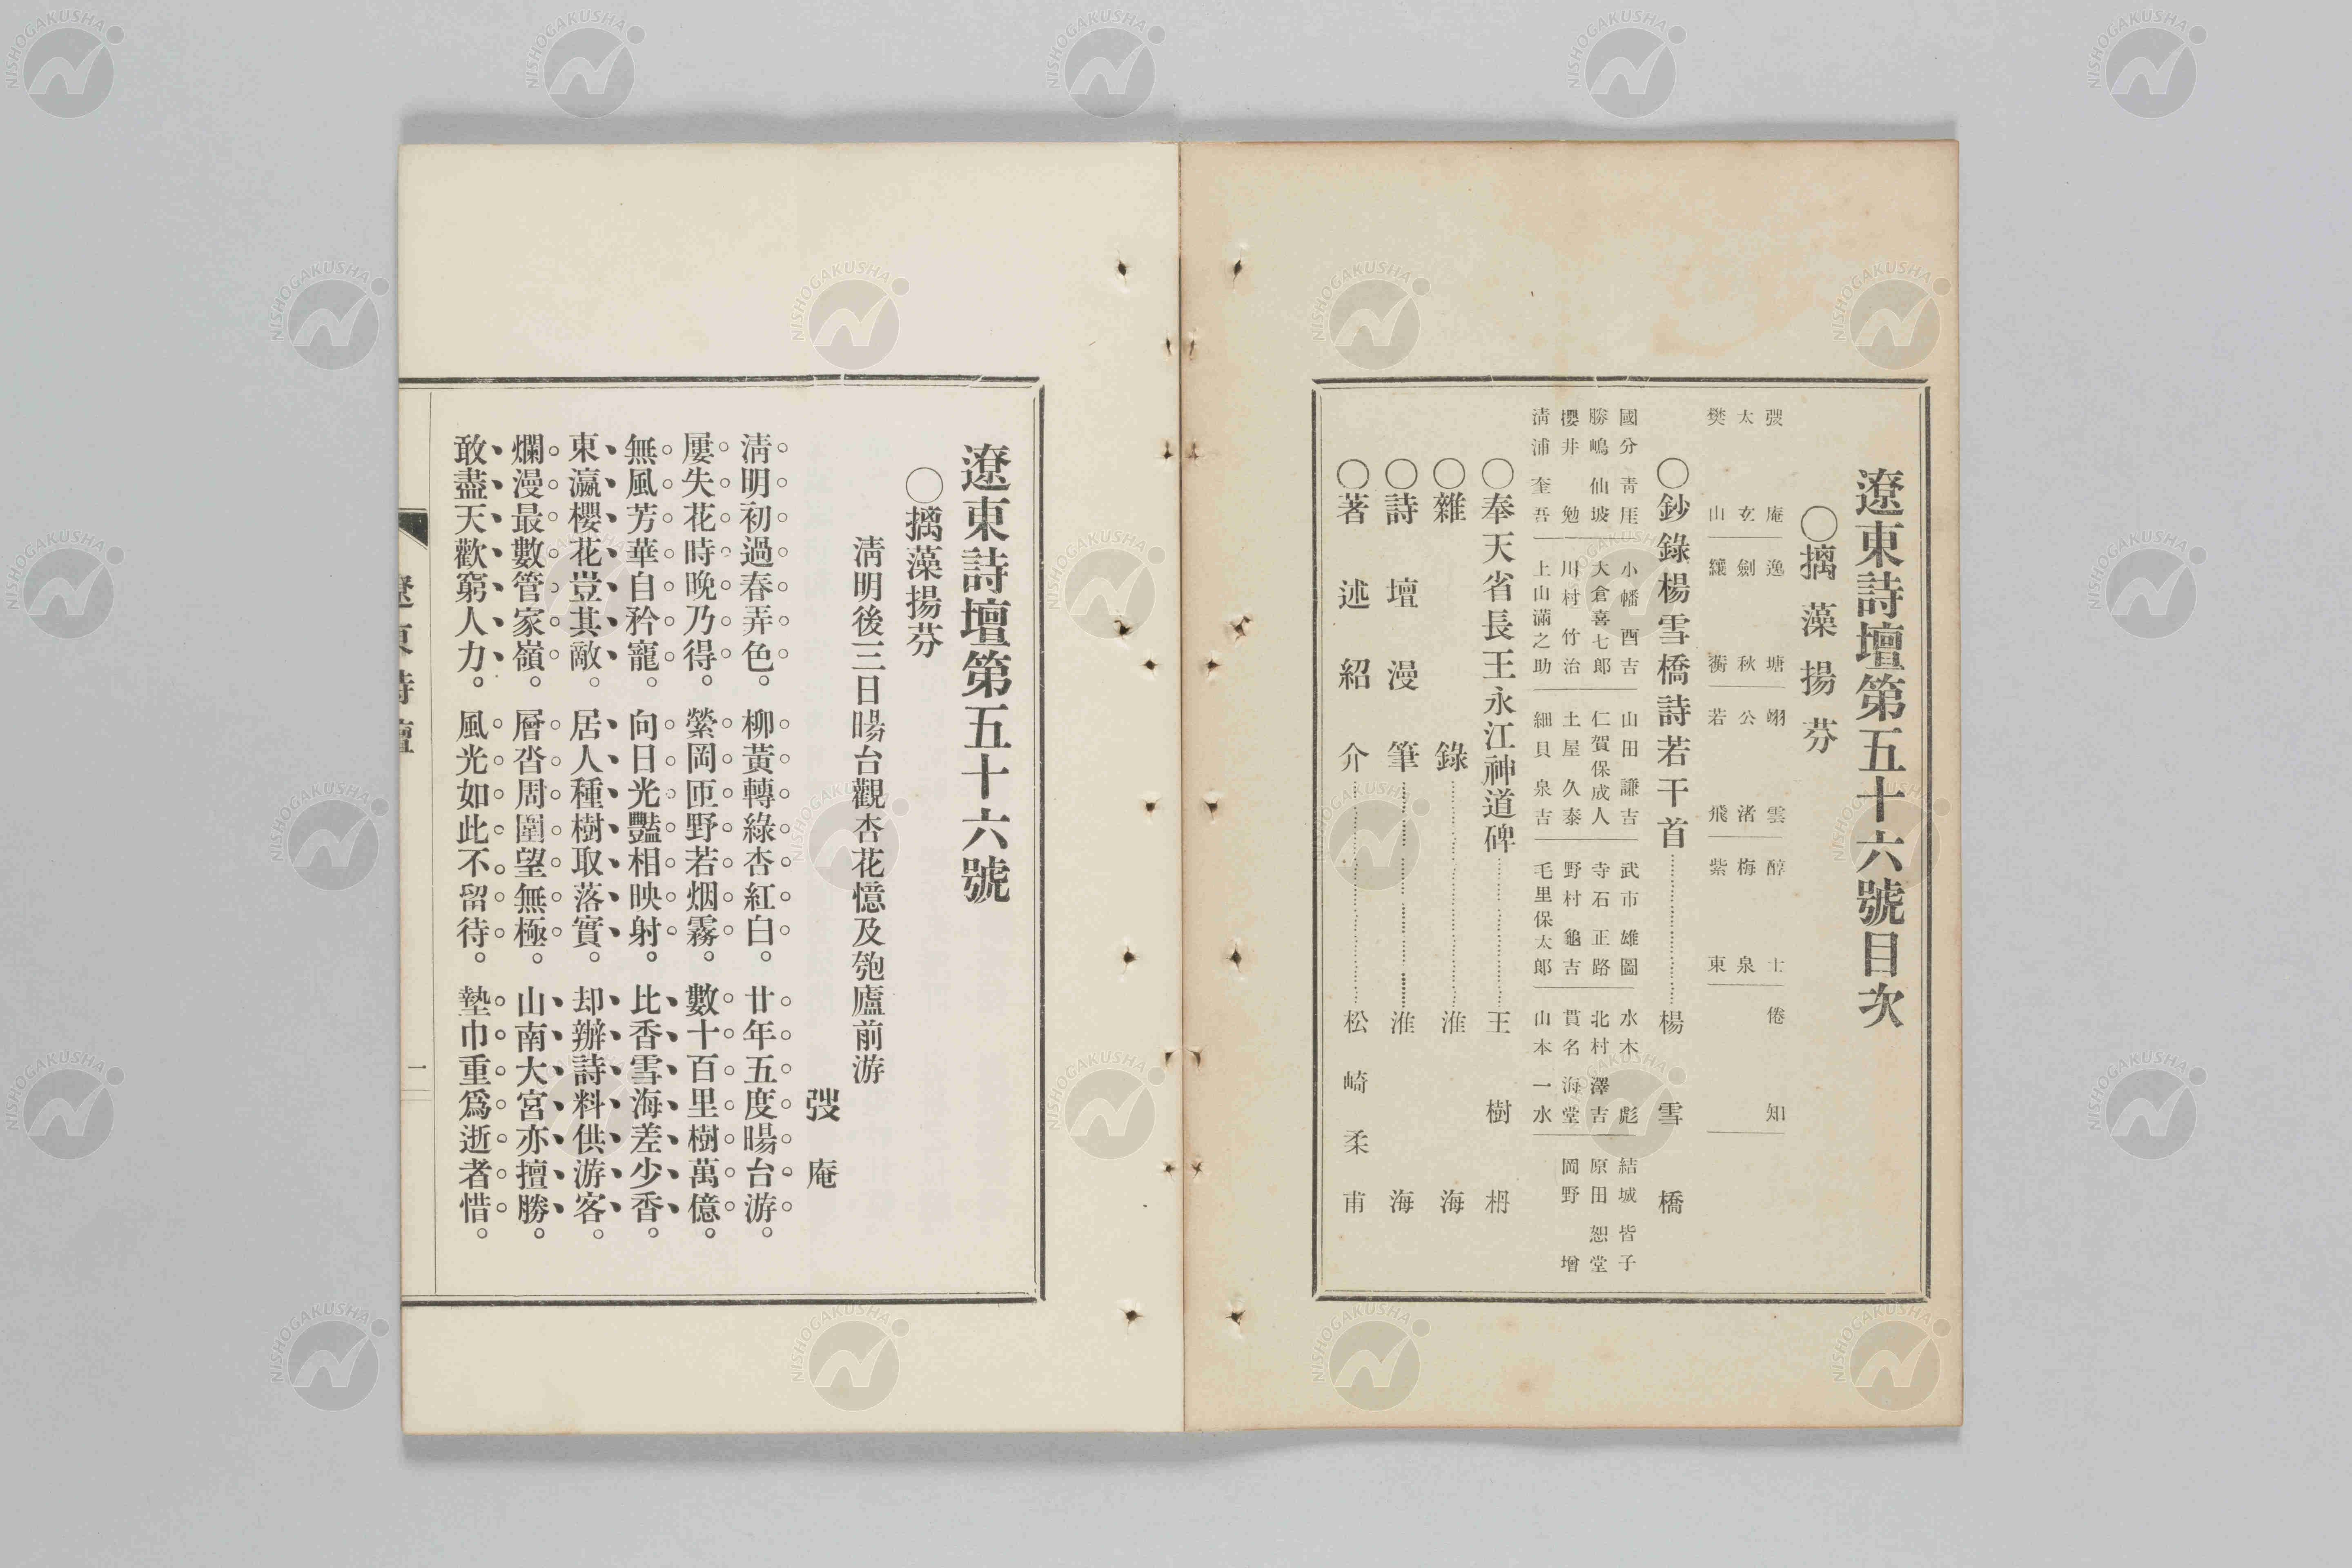 遼東詩壇第五十六號目次
○摛藻揚芬
弢庵 逸塘 翊雲 醇士 倦知
太玄 劍秋 公渚 梅泉
樊山 纕蘅 若飛 紫東
○鈔錄楊雪橋詩若干首……楊雪橋
國分青厓 小幡酉吉 山田謙吉 武市雄圖 水木彪 結城皆子
勝嶋仙坡 大倉喜七郎 仁賀保成人 寺石正路 北村澤吉 原田恕堂
櫻井勉 川村竹治 土屋久泰 野村龜吉 貫名海堂 岡野增
淸浦奎吾 上山滿之助 細貝泉吉 毛里保太郎 山本一水
○奉天省長王永江神道碑……王樹枏
○雜錄……淮海
○詩壇漫筆……淮海
○著述紹介……松崎柔甫
遼東詩壇第五十六號
○摛藻揚芬
淸明後三日暘台觀杏花憶及匏廬前游
弢庵
淸明初過春弄色。柳黃轉綠杏紅白。廿年五度暘台游。
屢失花時晚乃得。縈岡匝野若烟霧。數十百里樹萬億。
無風芳華自矜寵。向日光豔相映射。比香雪海差少香。
東瀛櫻花豈其敵。居人種樹取落實。却辦詩料供游客。
爛漫最數管家嶺。層沓周圍望無極。山南大宮亦擅勝。
敢盡天歡窮人力。風光如此不留待。墊巾重爲逝者惜。
遼東詩壇
一
NISHOGAKUSHA